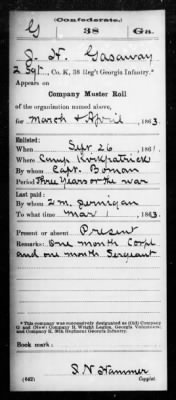 (Confederate.)
G 38 Ga.
J. H. Gasaway
2 Sgt, Co. K, 38 Reg't Georgia Infantry.*
Appears on
Company Muster Roll
of the organization named above,
for March & April, 1863.
Enlisted:
When Sept 26, 1861
Where Camp Kirkpatrick
By whom Capt. Boman
Period Three Years or the war
Last paid:
By whom Z. M. Jernigan
To what time Mar 1, 1863.
Present or absent Present
Remarks: One month Corpl
and one month Sergeant
*This company was successively designated as (Old) Company
G and (New) Company H, Wright Legion, Georgia Volunteers;
and Company K, 38th Regiment Georgia Infantry.
Book mark:
S. N. Hammer
(642) Copyist.